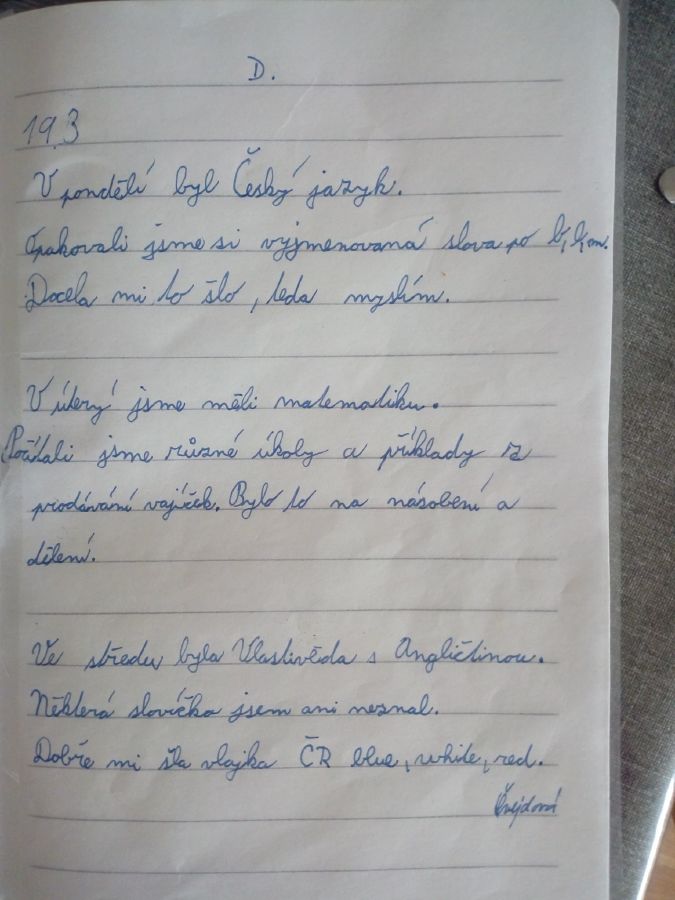 D.
19.3
V pondělí byl Český jazyk.
Opakovali jsme si vyjmenovaná slova po b, l, m.
Docela mi to šlo, teda myslím.
V úterý jsme měli matematiku.
Počítali jsme různé úkoly a příklady z
prodávání vajíček. Bylo to na násobení a
dělení.
Ve středu byla Vlastivěda s Angličtinou.
Některá slovíčka jsem ani neznal.
Dobře mi šla vlajka ČR blue, white, red.